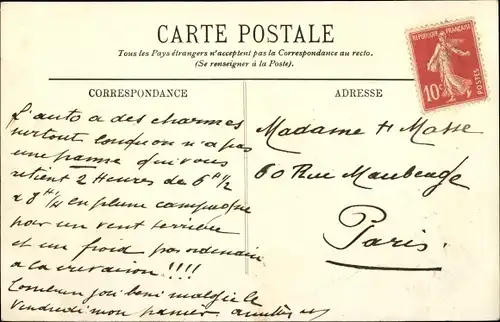 CARTE POSTALE
Tous les Pays étrangers n'acceptent pas la Correspondance au recto.
(Se renseigner à la Poste).
RÉPUBLIQUE FRANÇAISE
10c
POSTES
CORRESPONDANCE
ADRESSE
L'auto a des charmes
surtout lorsqu'on n'a pas
une panne qui vous
retient 2 Heures de 6 H 1/2
à 8 H 1/2 en pleine campagne
par un vent terrible
et un froid
à la !!!!
Combien j'ai béni malgré le
Vendredi mon panier
Madame H Masse
60 Rue Maubeuge
Paris.